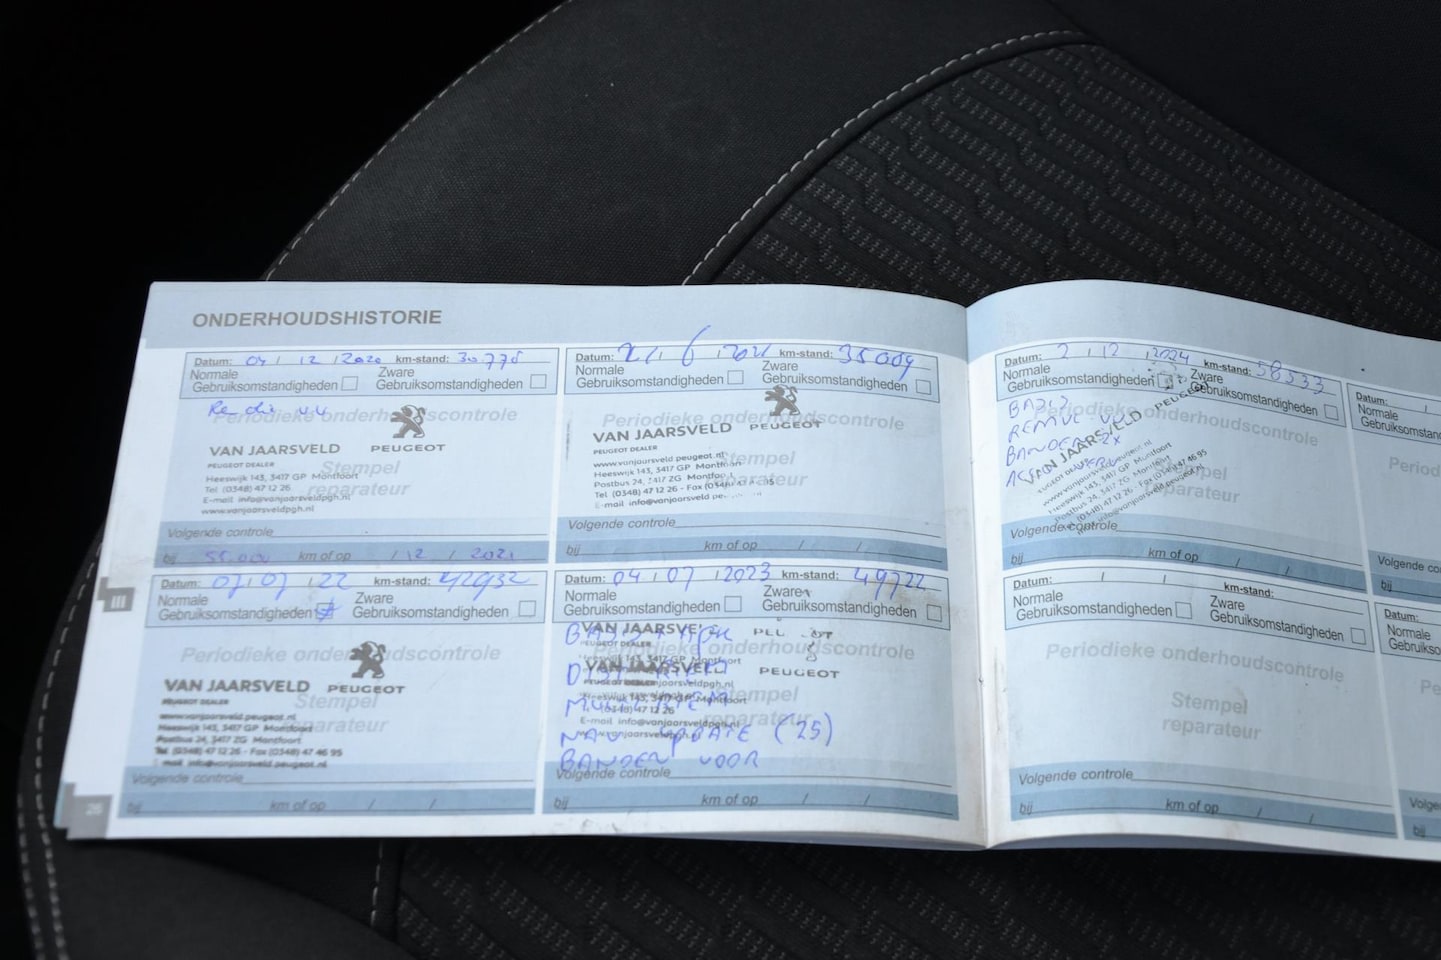 ONDERHOUDSHISTORIE
Datum: 04 / 12 / 2020 km-stand: 30778
Normale Gebruiksomstandigheden
Zware Gebruiksomstandigheden
Periodieke onderhoudscontrole
VAN JAARSVELD PEUGEOT
PEUGEOT DEALER
Stempel
Heeswijk 143, 3417 GP Montfoort
reparateur
Tel (0348) 47 12 26
E-mail info@vanjaarsveldpgh.nl
www.vanjaarsveldpgh.nl
Volgende controle
bij 55.000 km of op / 12 / 2021
Datum: 21 / 6 / 2021 km-stand: 35009
Normale Gebruiksomstandigheden
Zware Gebruiksomstandigheden
Periodieke onderhoudscontrole
VAN JAARSVELD PEUGEOT
PEUGEOT DEALER
www.vanjaarsveld.peugeot.nl
Stempel
Heeswijk 143, 3417 GP Montfoort
Postbus 24, 3417 ZG Montfoort
reparateur
Tel (0348) 47 12 26 - Fax (0348) 47 46 95
E-mail info@vanjaarsveld.pe
Volgende controle
bij km of op / /
Datum: 07 / 07 / 22 km-stand: 42932
Normale Gebruiksomstandigheden
Zware Gebruiksomstandigheden
Periodieke onderhoudscontrole
VAN JAARSVELD PEUGEOT
PEUGEOT DEALER
Stempel
www.vanjaarsveld.peugeot.nl
Heeswijk 143, 3417 GP Montfoort
reparateur
Postbus 24, 3417 ZG Montfoort
Tel (0348) 47 12 26 - Fax (0348) 47 46 95
E-mail info@vanjaarsveld.peugeot.nl
Volgende controle
bij km of op / /
Datum: 04 / 07 / 2023 km-stand: 49722
Normale Gebruiksomstandigheden
Zware Gebruiksomstandigheden
Periodieke onderhoudscontrole
VAN JAARSVELD PEUGEOT
PEUGEOT DEALER
VAN JAARSVELD PEUGEOT
Stempel
Heeswijk 143, 3417 GP Montfoort
(0348) 47 12 26
reparateur
E-mail info@vanjaarsveldpgh.nl
NAV UPDATE (25)
BANDEN VOOR
Volgende controle
bij km of op / /
Datum: 2 / 12 / 2024 km-stand: 58533
Normale Gebruiksomstandigheden
Zware Gebruiksomstandigheden
BASIS
Periodieke onderhoudscontrole
BANDEN 2x
VAN JAARSVELD PEUGEOT
Stempel
Heeswijk 143, 3417 GP Montfoort
Postbus 24, 3417 ZG Montfoort
reparateur
(0348) 47 12 26 - Fax (0348) 47 46 95
info@vanjaarsveld.peugeot.nl
Volgende controle
bij km of op / /
Datum: / / km-stand:
Normale Gebruiksomstandigheden
Zware Gebruiksomstandigheden
Periodieke onderhoudscontrole
Stempel
reparateur
Volgende controle
bij km of op / /
Datum:
Normale
Gebruiksomsta
Period
Volgende
bij
Datum:
Normale
Gebruiksom
Pe
Volge
bij
III
26